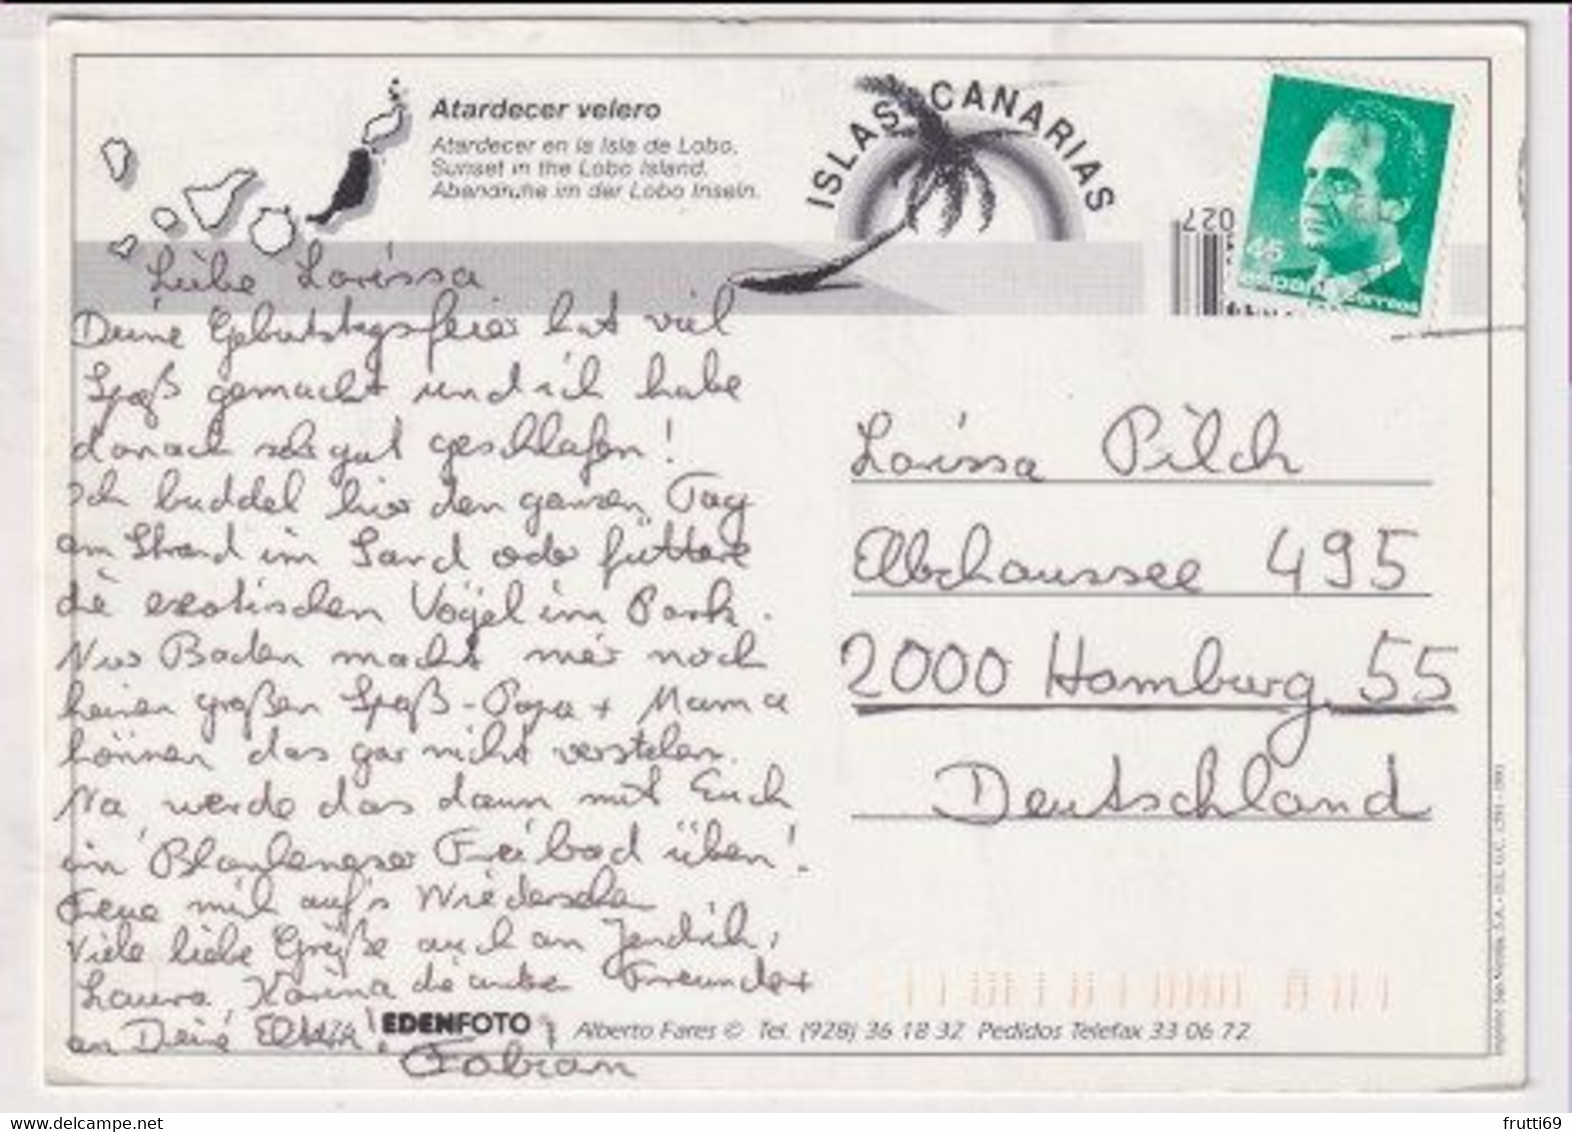 Atardecer velero
Atardecer en la Isla de Lobo.
Sunset in the Lobo Island.
Abendruhe im der Lobo Inseln.
ISLAS CANARIAS
027
45
españa correos
Liebe Larissa
Deine Geburtstagsfeier hat viel
Spaß gemacht und ich habe
danach sehr gut geschlafen!
Ich buddel hier den ganzen Tag
am Strand im Sand oder füttere
die exotischen Vögel im Park.
Nur Baden macht mir noch
keinen großen Spaß - Papa + Mama
können das gar nicht verstehen.
Na werde das dann mit Euch
im Blankeneser Freibad üben!
Freue mich auf's Wiedersehen
Viele liebe Grüße auch an Jendrich,
Laura, Karina die andere Freunde +
an Deine Eltern!
Fabian
Larissa Pilch
Elbchaussee 495
2000 Hamburg 55
Deutschland
EDENFOTO
Alberto Fares © Tel. (928) 36 18 32 Pedidos Telefax 33 06 72
frutti69